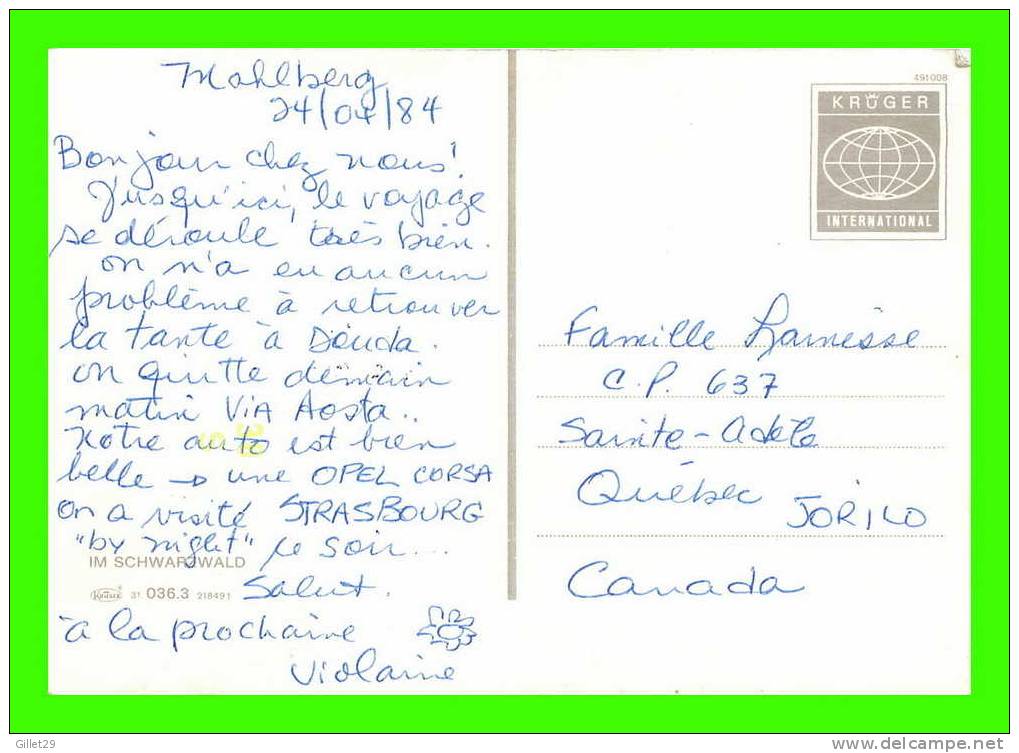 Mahlberg
24/04/84
Bonjour chez nous!
Jusqu'ici, le voyage
se déroule très bien.
on n'a eu aucun
problème à retrouver
la tante à Douda.
on quitte demain
matin VIA Aosta..
Notre auto est bien
belle → une OPEL CORSA
on a visité STRASBOURG
"by night" ce soir...
Salut.
à la prochaine
Violaine
IM SCHWARZWALD
Krüger 31 036.3 218491
491008
KRÜGER
INTERNATIONAL
Famille Lamésse
C.P. 637
Sainte-Adèle
Québec JOR1LO
Canada
Gillet29
http://www.delcampe.net